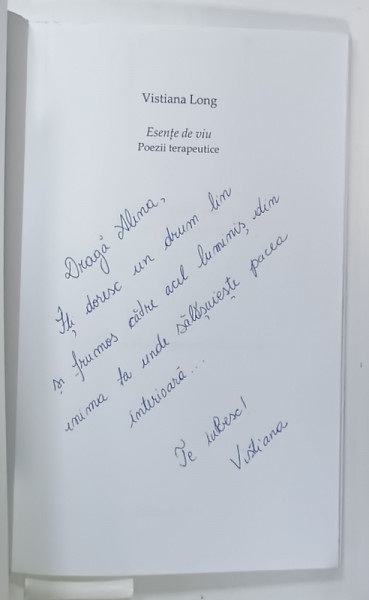 Vistiana Long
Esențe de viu
Poezii terapeutice
Dragă Alina,
Îți doresc un drum lin
și frumos către acel luminiș din
inima ta unde sălășuiește pacea
interioară...
Te iubesc!
Vistiana